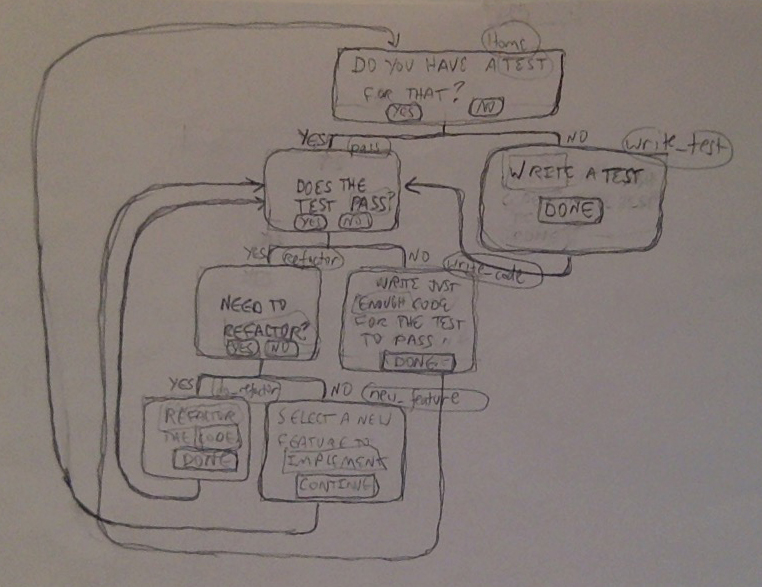 Home
DO YOU HAVE A TEST
FOR THAT?
YES NO
YES pass
NO write_test
DOES THE
TEST PASS?
YES NO
WRITE A TEST
DONE
YES refactor
NO write_code
NEED TO
REFACTOR?
YES NO
WRITE JUST
ENOUGH CODE
FOR THE TEST
TO PASS.
DONE
YES do_refactor
NO new_feature
REFACTOR
THE CODE
DONE
SELECT A NEW
FEATURE TO
IMPLEMENT
CONTINUE